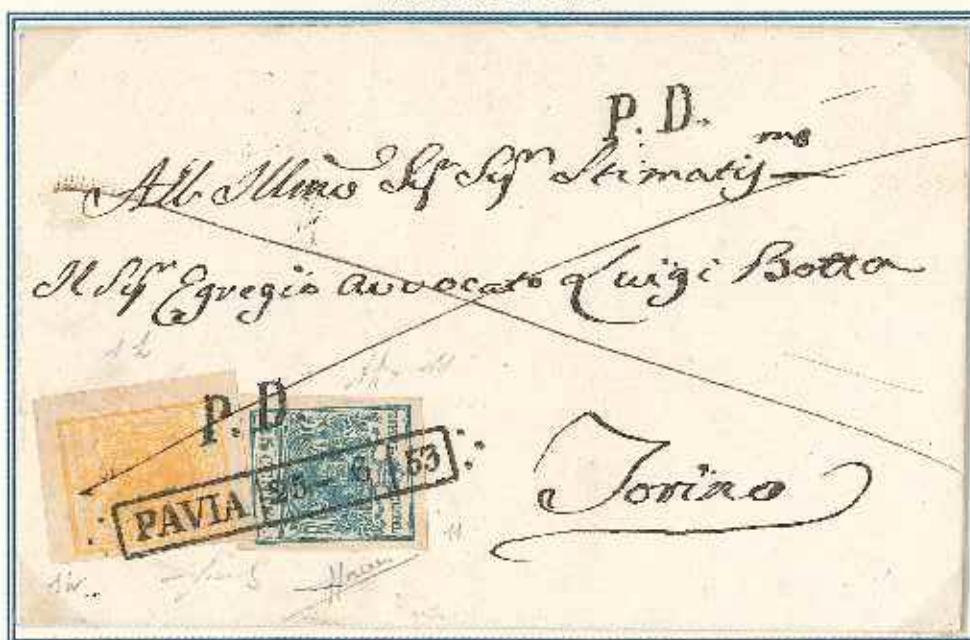 P. D.
All Illmo Sigr Sigr Stimatisme
Il Sigr Egregio Avvocato Luigi Botta
P. D
PAVIA 25 - 6 53
Torino